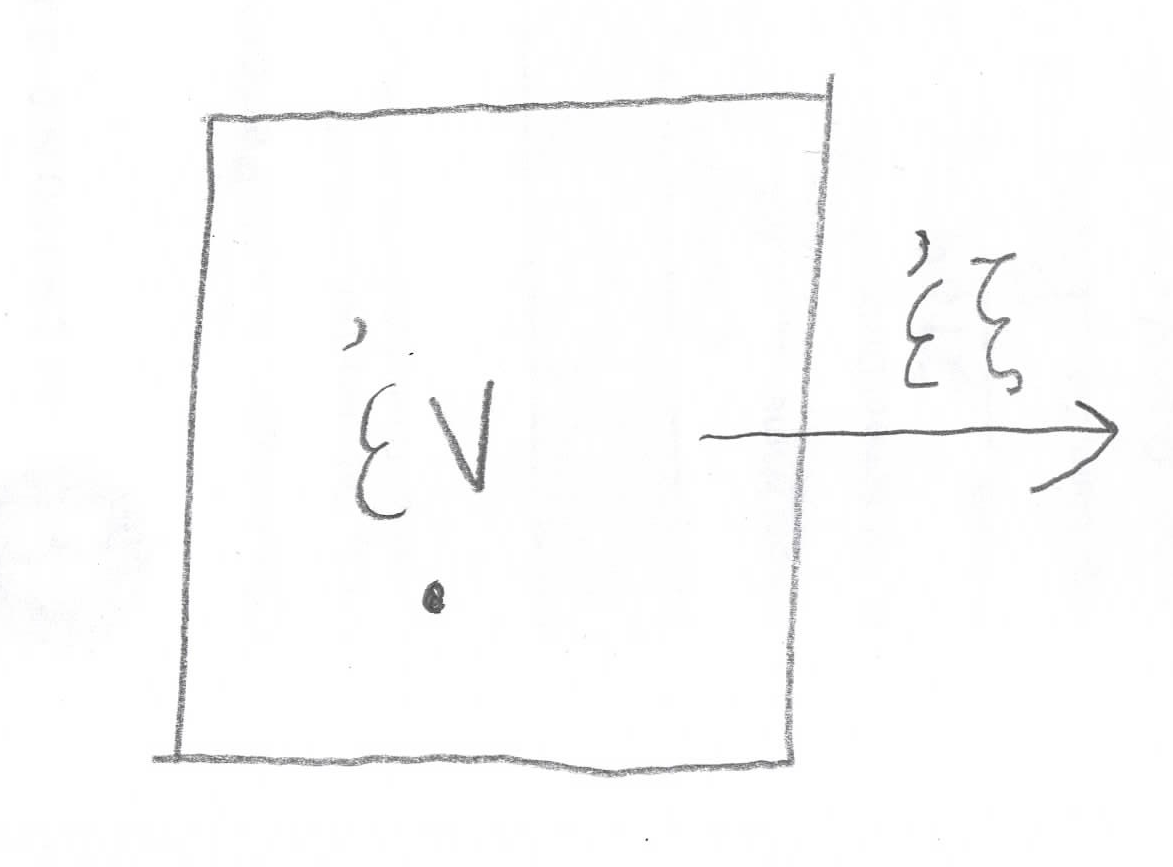 ἐν
ἐξ